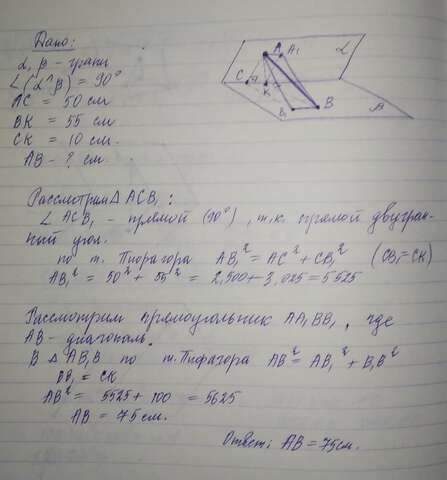 Дано:
α, β - грани
∠(α^β) = 90°
AC = 50 см
BK = 55 см
CK = 10 см.
AB - ? см.
A A₁ α
C a
K
B₁ B β
Рассмотрим △ ACB₁ :
∠ ACB₁ - прямой (90°), т.к. прямой двугран-
ный угол.
по т. Пифагора AB₁² = AC² + CB₁² (CB₁=CK)
AB₁² = 50² + 55² = 2,500 + 3,025 = 5525
Рассмотрим прямоугольник AA₁BB₁, где
AB - диагональ.
В △ AB₁B по т. Пифагора AB² = AB₁² + B₁B²
BB₁ = CK
AB² = 5525 + 100 = 5625
AB = 75 см.
Ответ: AB = 75 см.